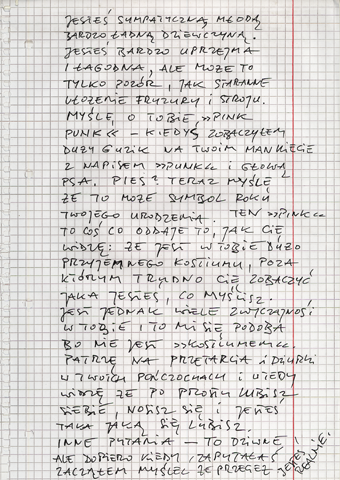 JESTEŚ SYMPATYCZNĄ, MŁODĄ
BARDZO ŁADNĄ DZIEWCZYNĄ.
JESTEŚ BARDZO UPRZEJMA
I ŁAGODNA, ALE MOŻE TO
TYLKO POZÓR, JAK STARANNE
UŁOŻENIE FRYZURY I STROJU.
MYŚLĘ, O TOBIE, »PINK
PUNK« – KIEDYŚ ZOBACZYŁEM
DUŻY GUZIK NA TWOIM MANKIECIE
Z NAPISEM »PUNK« I GŁOWĄ
PSA. PIES? TERAZ MYŚLĘ
ŻE TO MOŻE SYMBOL ROKU
TWOJEGO URODZENIA. TEN »PINK«
TO COŚ CO ODDAJE TO, JAK CIĘ
WIDZĘ: ŻE JEST W TOBIE DUŻO
PRZYJEMNEGO KOSTIUMU, POZA
KTÓRYM TRUDNO CIĘ ZOBACZYĆ
JAKA JESTEŚ, CO MYŚLISZ.
JEST JEDNAK WIELE ZWYCZAJNOŚCI
W TOBIE I TO MI SIĘ PODOBA
BO NIE JEST »KOSTIUMEM«.
PATRZĘ NA PRZETARCIA I DZIURKI
W TWOICH POŃCZOCHACH I WTEDY
WIDZĘ ŻE PO PROSTU LUBISZ
SIEBIE, NOSISZ SIĘ I JESTEŚ
TAKA JAKĄ SIĘ LUBISZ.
INNE PYTANIA – TO DZIWNE!
ALE DOPIERO KIEDY ZAPYTAŁAŚ
ZACZĄŁEM MYŚLEĆ ŻE PRZECIEŻ
JESTEŚ
REALNIE.